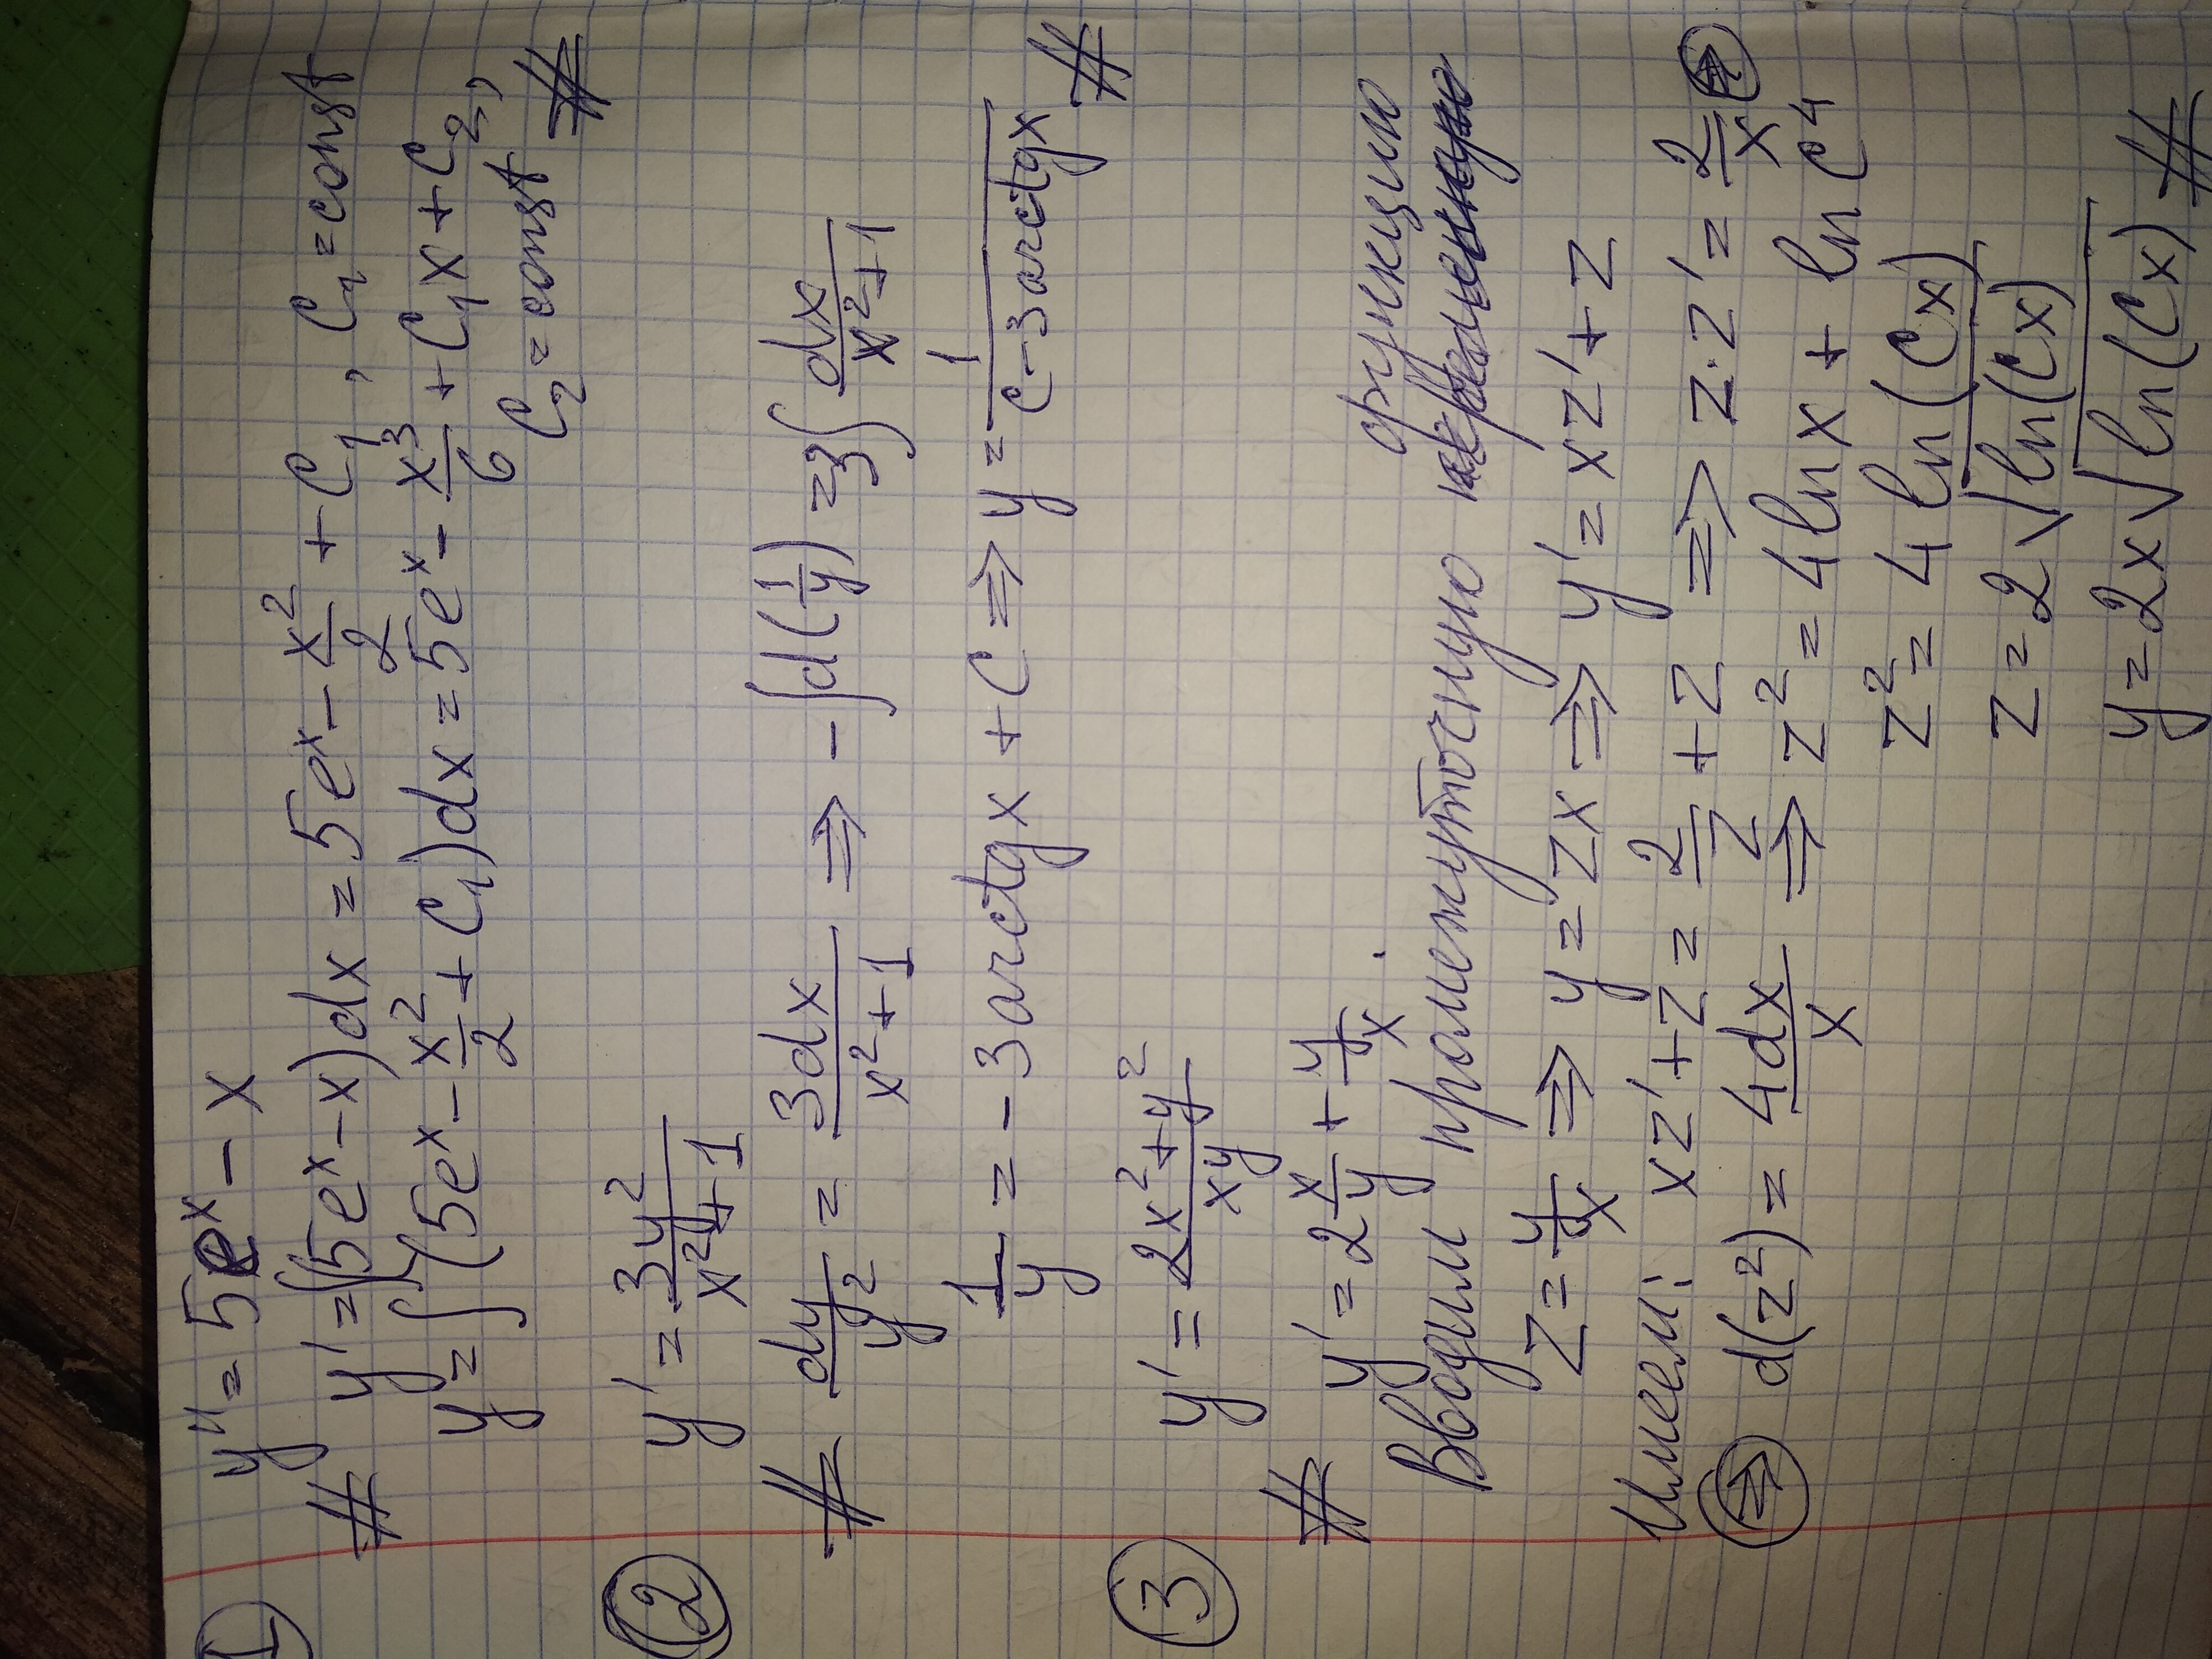 ① y'' = 5eˣ - x
# y' = ∫(5eˣ - x)dx = 5eˣ - x²/2 + C₁, C₁ = const
y = ∫(5eˣ - x²/2 + C₁)dx = 5eˣ - x³/6 + C₁x + C₂,
C₂ = const #
② y' = 3y²/(x²+1)
# dy/y² = 3dx/(x²+1) ⇒ -∫d(1/y) = 3∫dx/(x²+1)
1/y = -3arctgx + C ⇒ y = 1/(C-3arctgx) #
③ y' = (2x²+y²)/(xy)
# y' = 2x/y + y/x.
Вводим промежуточную функцию
z = y/x ⇒ y = zx ⇒ y' = xz' + z
Имеем: xz' + z = 2/z + z ⇒ z·z' = 2/x ⇒
⇒ d(z²) = 4dx/x ⇒ z² = 4lnx + ln C⁴
z² = 4 ln(Cx)
z = 2√ln(Cx)
y = 2x√ln(Cx) #